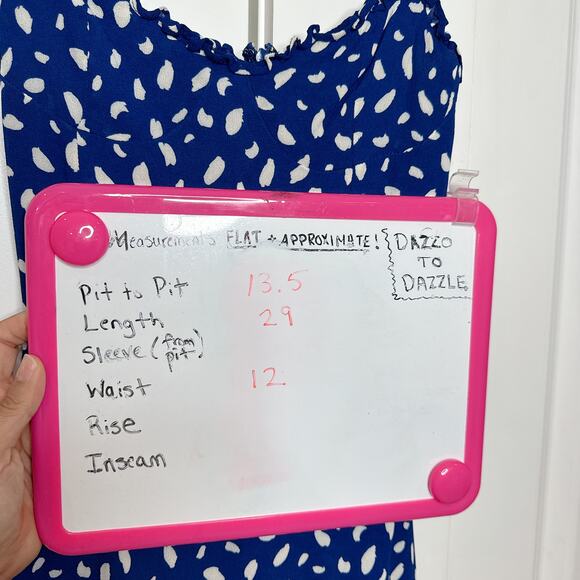 Measurements FLAT + APPROXIMATE!
DAZZO
TO
DAZZLE
Pit to Pit 13.5
Length 29
Sleeve (from pit)
Waist 12
Rise
Inseam